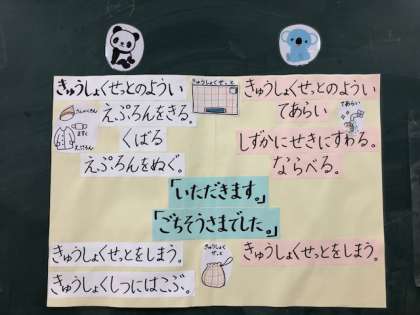 きゅうしょくせっとのようい
えぷろんをきる。
くばる
えぷろんをぬぐ。
きゅうしょくせっと
きゅうしょくせっとのようい
てあらい
てあらい
しずかにせきにすわる。
ならべる。
「いただきます。」
「ごちそうさまでした。」
きゅうしょくせっとをしまう。
きゅうしょくしつにはこぶ。
きゅうしょくせっとをしまう。